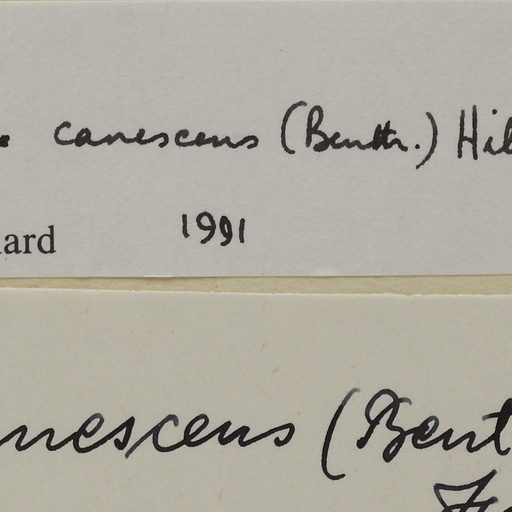 canescens (Benth.) Hil
ard 1991
nescens (Bent